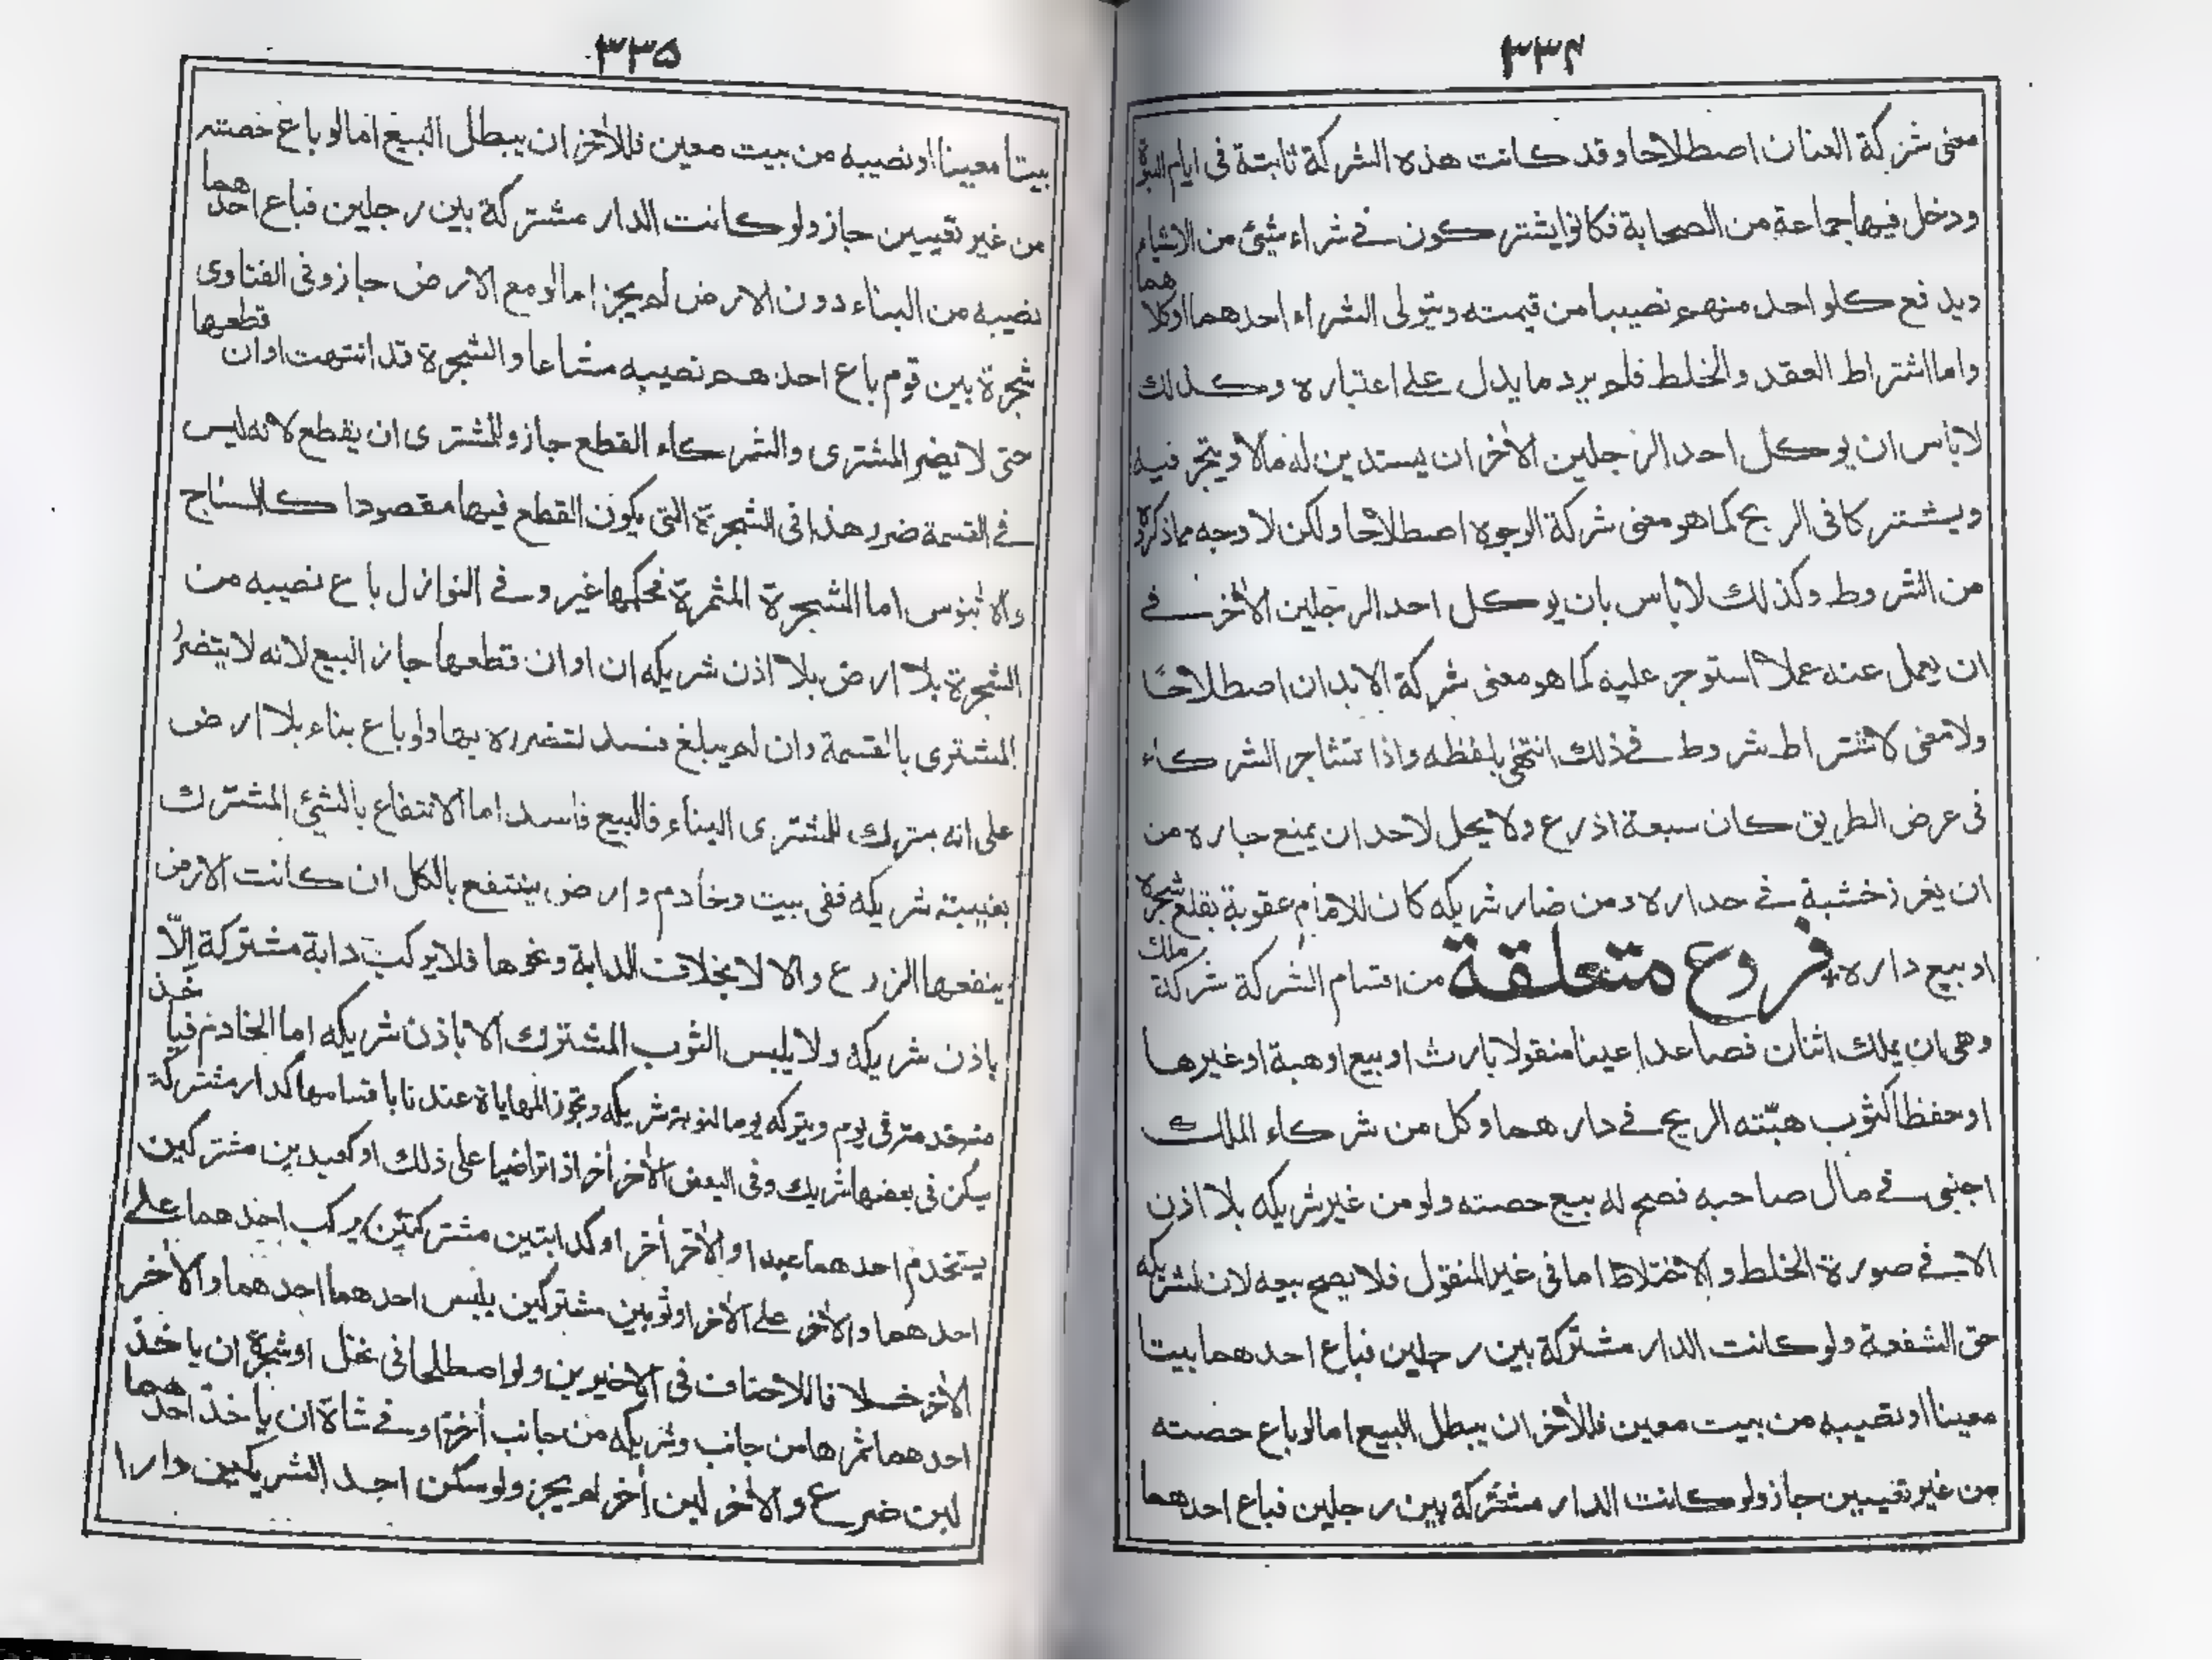 ٣٣٤
معنى شركة العنان اصطلاحا وقد كانت هذه الشركة ثابتة فى ايام النبوة
ودخل فيها جماعة من الصحابة فكانوا يشتركون في شراء شيئ من الاشياء
ويدفع كلواحد منهم نصيبا من قيمته ويتولى الشراء احدهما اوكلاهما
واما اشتراط العقد والخلط فلم يرد ما يدل على اعتباره وكذلك
لاباس ان يوكل احد الرجلين الأخر ان يستدين له مالا ويتجر فيه
ويشتركا فى الربح كما هو معنى شركة الوجوه اصطلاحا ولكن لا وجه مما ذكروه
من الشروط وكذلك لاباس بان يوكل احد الرجلين الأخر في
ان يعمل عنه عملا استوجر عليه كما هو معنى شركة الابدان اصطلاحًا
ولا معنى لاشتراط شروط في ذلك انتهى بلفظه واذا تشاجر الشركاء
فى عرض الطريق كان سبعة اذرع ولا يحل لاحد ان يمنع جاره من
ان يغرز خشبة في جداره ومن ضار شريكه كان للامام عقوبة بقلع شجره
او بيع داره + فروع متعلقة من اقسام الشركة شركة ملك
وهى ان يملك اثنان فصاعدا عينا منقولا بارث او بيع او هبة او غيرها
او حفظا كثوب هبّته الريح في دارهما وكل من شركاء الملك
اجنبى في مال صاحبه فصح له بيع حصته ولو من غير شريكه بلا اذن
الا في صورة الخلط و الاختلاط اما فى غير المنقول فلا يصح بيعه لان لشريكه
حق الشفعة ولو كانت الدار مشتركة بين رجلين فباع احدهما بيتا
معينا او نصيبه من بيت معين فللأخر ان يبطل البيع اما لو باع حصته
من غير تعيين جاز ولو كانت الدار مشتركة بين رجلين فباع احدهما
٣٣٥
بيتا معينا او نصيبه من بيت معين فللأخر ان يبطل البيع اما لو باع حصته
من غير تعيين جاز ولو كانت الدار مشتركة بين رجلين فباع احدهما
نصيبه من البناء دون الارض لم يجز اما لو مع الارض جاز وفى الفتاوى
شجرة بين قوم باع احدهم نصيبه مشاعا والشجرة قد انتهت اوان قطعها
حتى لا يضر المشترى والشركاء القطع جاز وللمشترى ان يقطع لانه ليس
في القسمة ضرر هذا فى الشجرة التى يكون القطع فيها مقصودا كالساج
والأبنوس اما الشجرة المثمرة فحكمها غير وفي النوازل باع نصيبه من
الشجرة بلا ارض بلا اذن شريكه ان اوان قطعها جاز البيع لانه لا يتضرر
المشترى بالقسمة وان لم يبلغ فسد لتضرره بها ولو باع بناء بلا ارض
على انه يترك للمشترى البناء فالبيع فاسد اما الانتفاع بالشيئ المشترك
بغيبة شريكه ففى بيت وخادم وارض ينتفع بالكل ان كانت الارض
ينفعها الزرع والا لا بخلاف الدابة ونحوها فلا يركب دابة مشتركة إلّا
باذن شريكه ولا يلبس الثوب المشترك الا باذن شريكه اما الخادم فياخذ
منه قدمته فى يوم ويتركه يوما لنوبة شريكه وتجوز المهاياة عندنا باقسامها كدار مشتركة
يسكن فى بعضها شريك وفى البعض الأخر أخر اذا تراضيا على ذلك او كعبدين مشتركين
يستخدم احدهما عبدا والأخر أخر او كدابتين مشتركتين يركب احدهما على
احدهما والأخر على الأخر او ثوبين مشتركين يلبس احدهما احدهما والأخر
الأخر خلافا للاحناف فى الاخيرين ولو اصطلحا فى نخل او شجرة ان ياخذ
احدهما ثمرها من جانب وشريكه من جانب أخر او في شاة ان ياخذ احدهما
لبن ضرع والأخر لبن أخر لم يجز ولو سكن احد الشريكين دارا